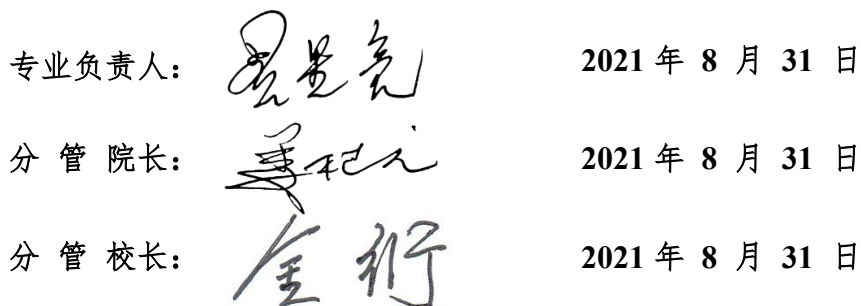 专业负责人: 2021 年 8 月 31 日
分 管 院长: 2021 年 8 月 31 日
分 管 校长: 金衍 2021 年 8 月 31 日